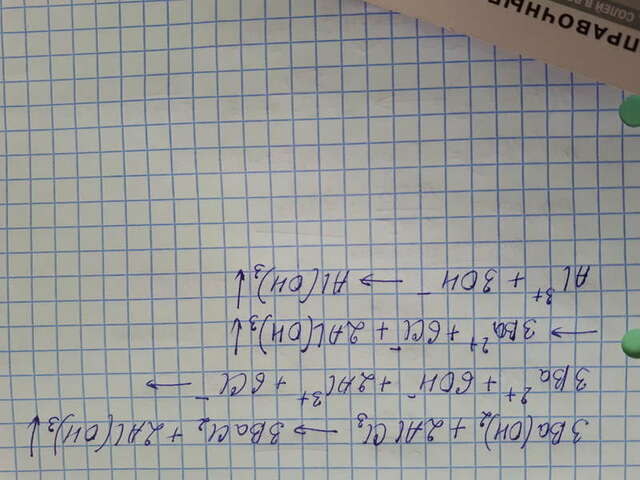 3Ba(OH)₂ + 2AlCl₃ → 3BaCl₂ + 2Al(OH)₃↓
3Ba²⁺ + 6OH⁻ + 2Al³⁺ + 6Cl⁻ →
→ 3Ba²⁺ + 6Cl⁻ + 2Al(OH)₃↓
Al³⁺ + 3OH⁻ → Al(OH)₃↓
ПРАВОЧНЫЕ
СОЛЕЙ В